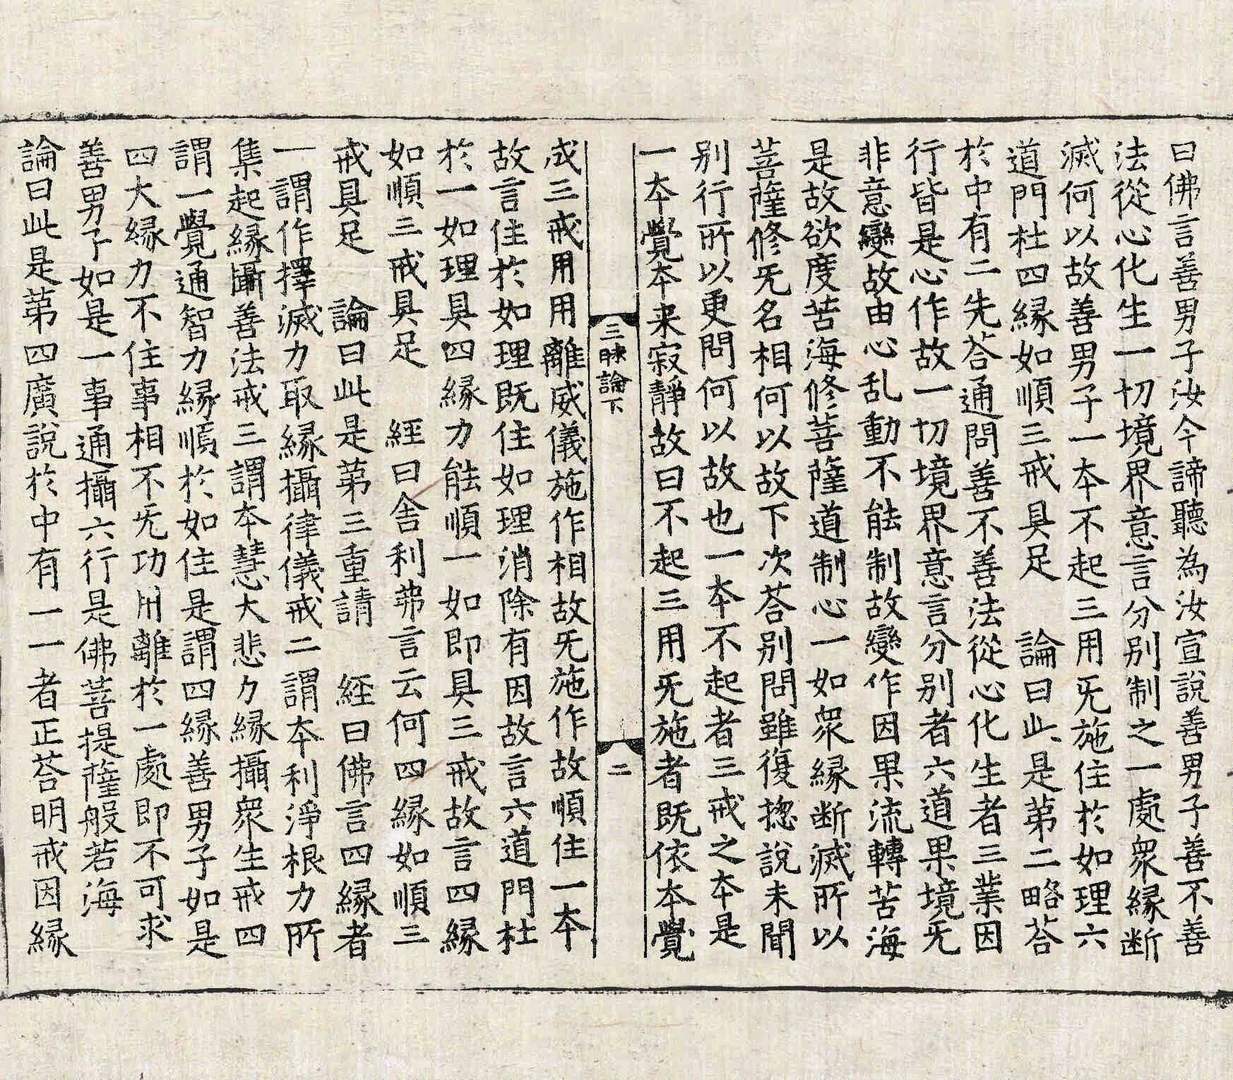 曰佛言善男子汝今諦聽為汝宣說善男子善不善
法從心化生一切境界意言分別制之一處眾緣断
滅何以故善男子一本不起三用旡施住於如理六
道門杜四緣如順三戒具足　論曰此是第二略荅
於中有二先荅通問善不善法從心化生者三業因
行皆是心作故一切境界意言分別者六道果境旡
非意變故由心乱動不能制故變作因果流轉苦海
是故欲度苦海修菩薩道制心一如眾緣断滅所以
菩薩修旡名相何以故下次荅別問雖復揔說未聞
別行所以更問何以故也一本不起者三戒之本是
一本覺本来寂靜故曰不起三用旡施者既依本覺
三昧論下
二
成三戒用用離威儀施作相故旡施作故順住一本
故言住於如理既住如理消除有因故言六道門杜
於一如理具四緣力能順一如即具三戒故言四緣
如順三戒具足　經曰舍利弗言云何四緣如順三
戒具足　論曰此是第三重請　經曰佛言四緣者
一謂作擇滅力取緣攝律儀戒二謂本利淨根力所
集起緣攝善法戒三謂本慧大悲力緣攝眾生戒四
謂一覺通智力緣順於如住是謂四緣善男子如是
四大緣力不住事相不旡功用離於一處即不可求
善男子如是一事通攝六行是佛菩提薩般若海
論曰此是第四廣說於中有一一者正荅明戒因緣